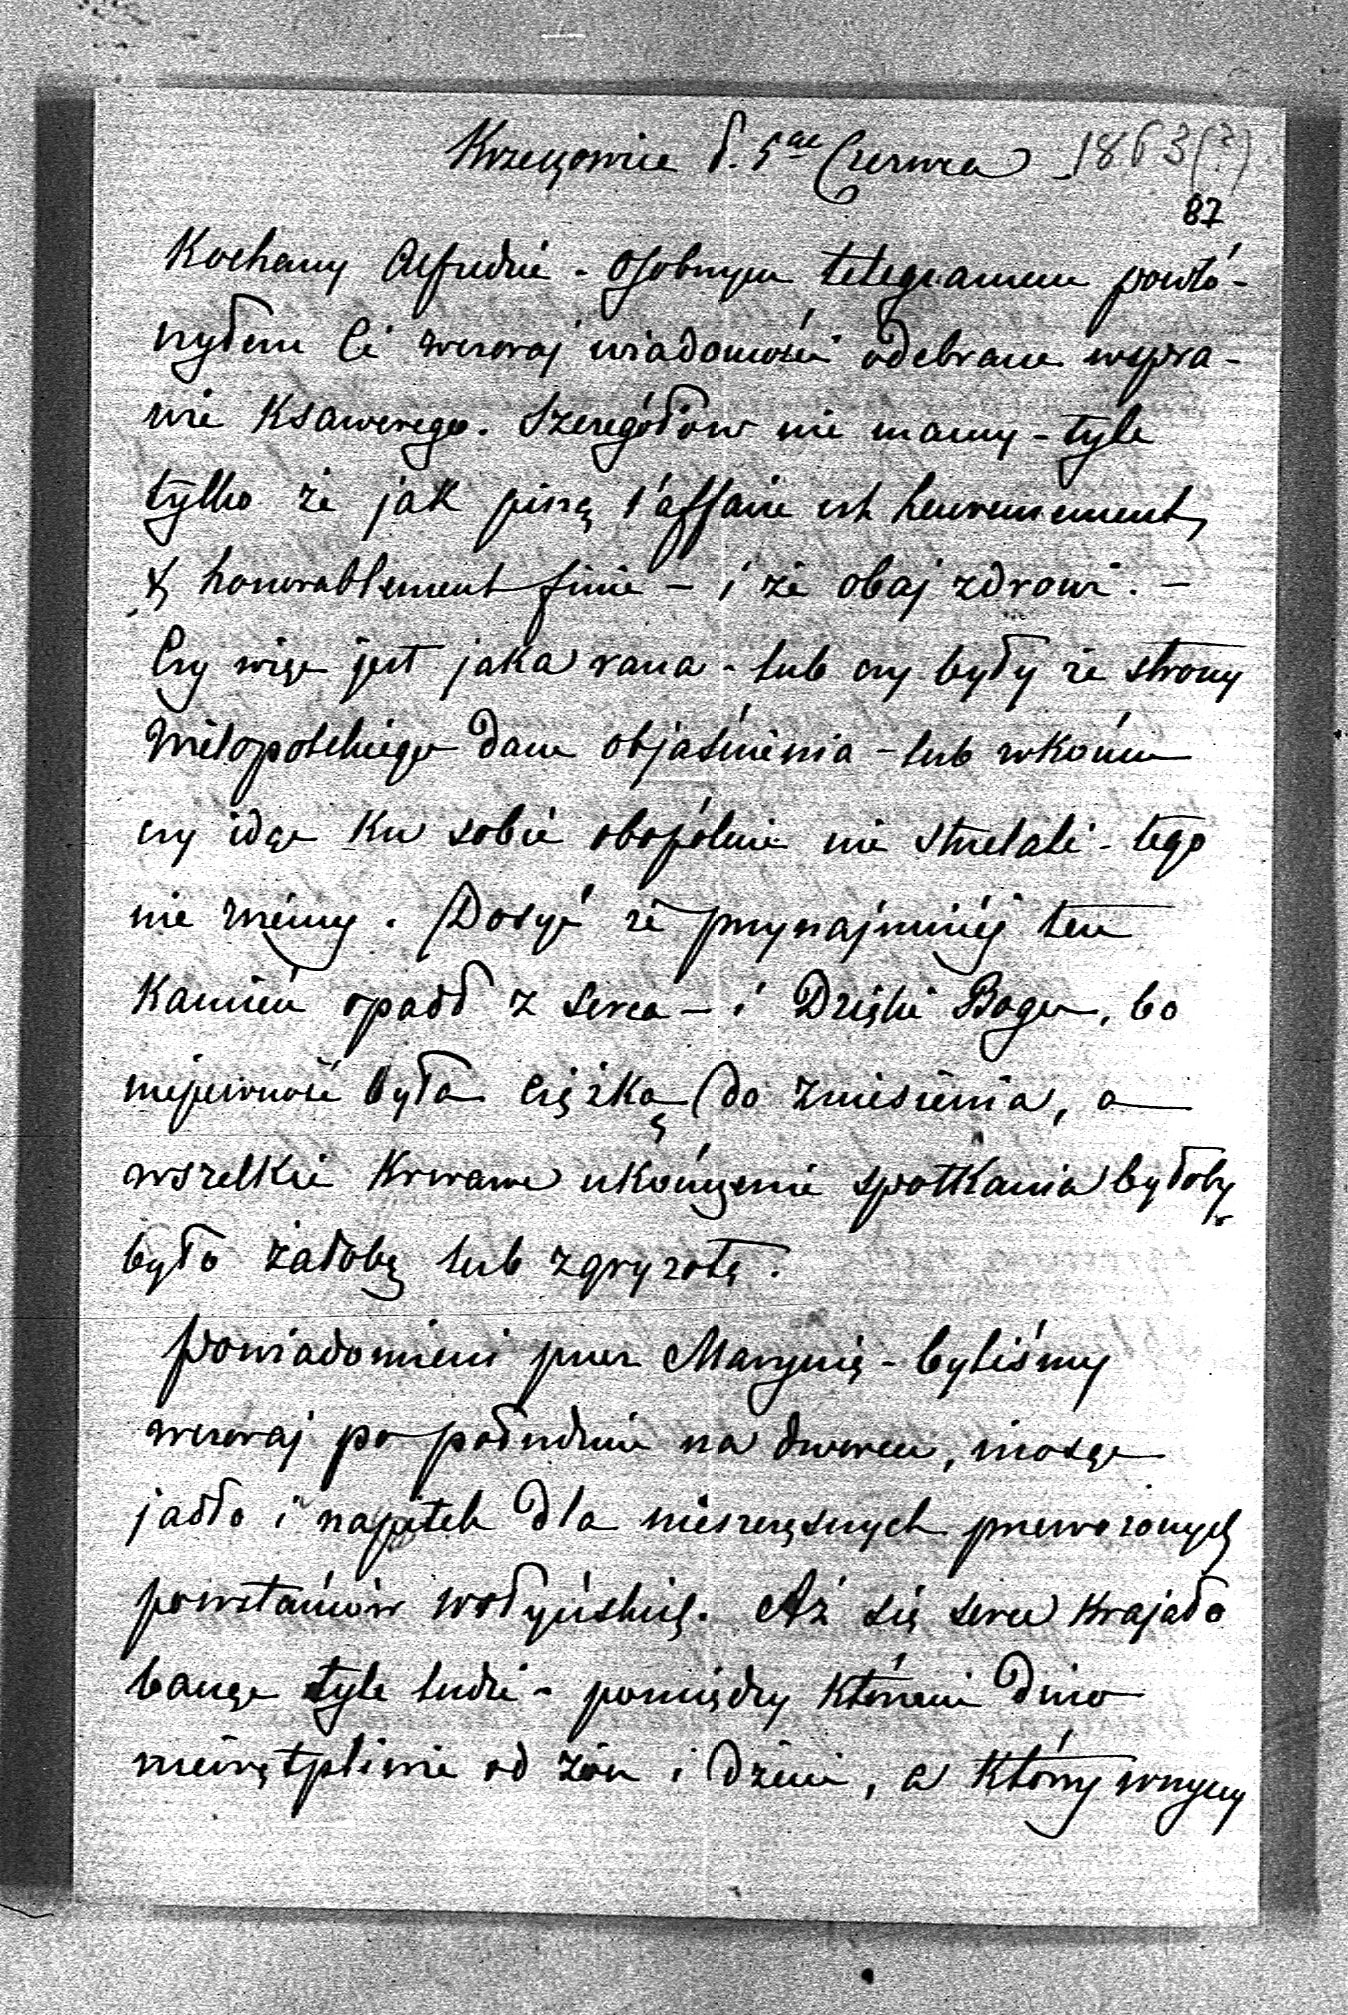 Krzeszowice d. 5go Czerwca 1863(?)
87
Kochany Alfredzie - Osobnym telegramem powtó-
rzyłem Ci wczoraj wiadomości odebrane wspra-
wie Ksawerego. Szczegółów nie mamy - tyle
tylko że jak piszą l'affaire est heureusement
& honorablement finie - i że obaj zdrowi. -
Czy więc jest jaka rana - lub czy były ze strony
Wielopolskiego dane objaśnienia - lub wkońcu
czy idąc ku sobie obopólnie nie strzelali - tego
nie wiemy. Dosyć że przynajmniej ten
Kamień opadł z serca - i Dzięki Bogu, bo
niepewność była ciężką do zniesienia, a
wszelkie krwawe ukończenie spotkania byłoby
było żałobą lub zgryzotą.
Powiadomieni przez Marynię - byliśmy
wczoraj po południu na dworcu, niosąc
jadło i napitek dla nieszczęsnych przewożonych
powstańców wołyńskich. Aż się serce krajało
bacząc tyle ludzi - pomiędzy któremi
niewątpliwie od żon i dzieci, a którzy wszyscy